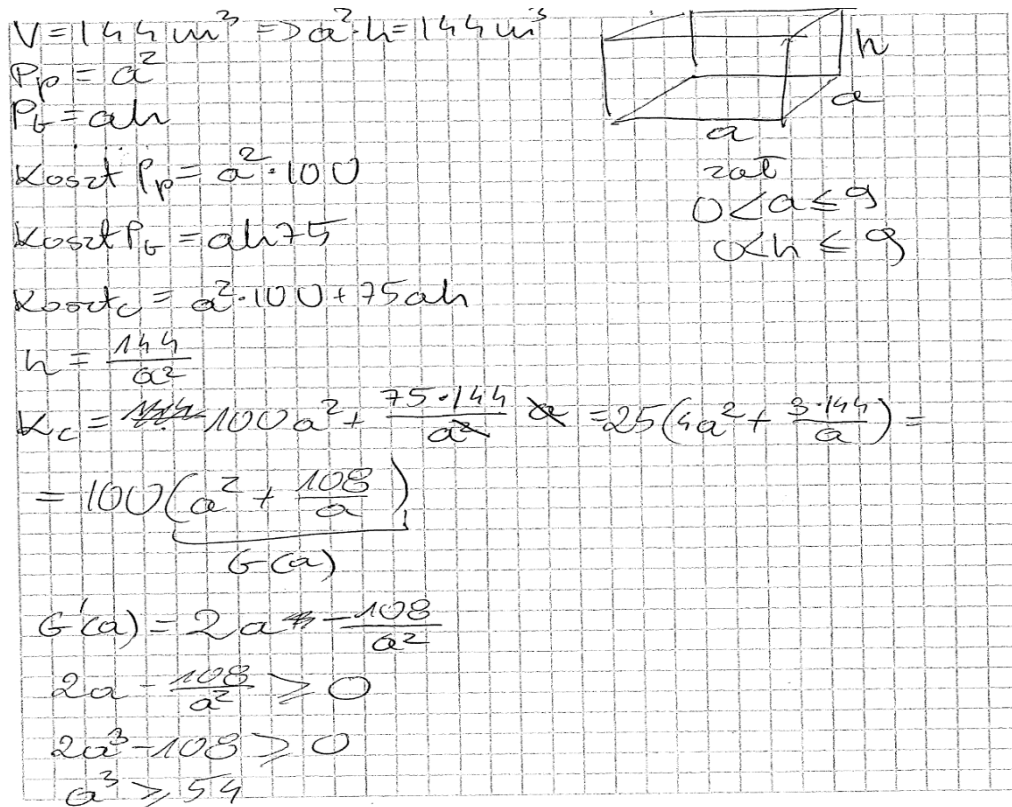 V=144m³ => a²·h=144m³
Pp = a²
Pb = ah
Koszt Pp = a²·100
Koszt Pb = ah75
Kosztc = a²·100+75ah
h = 144/a²
Kc = 100a² + 75·144/a² a = 25(4a² + 3·144/a) =
= 100(a² + 108/a)
G(a)
G'(a) = 2a - 108/a²
2a - 108/a² ≥ 0
2a³ - 108 ≥ 0
a³ ≥ 54
h
a
a
zał
0<a≤9
0<h≤9